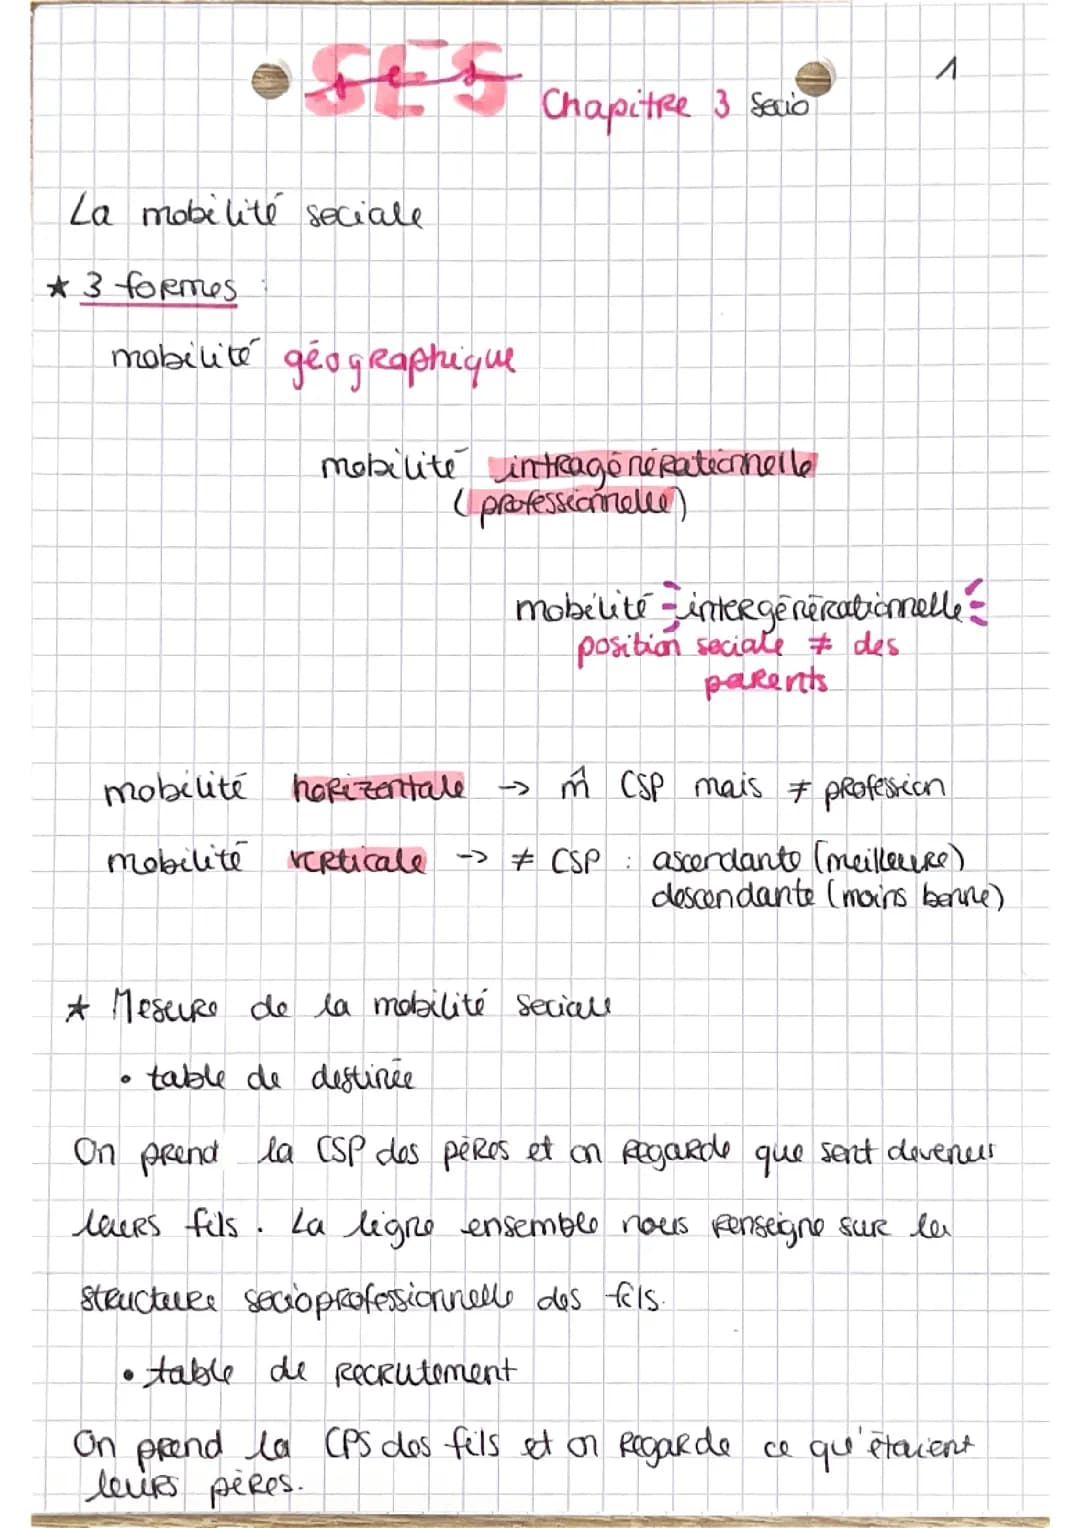 SES
Chapitre 3 Socio
1
La mobilité sociale
★ 3 formes :
mobilité géographique
mobilité intragénérationnelle
(professionnelle)
mobilité intergénérationnelle
position sociale ≠ des
parents
mobilité horizontale -> m̂ CSP mais ≠ profession
mobilité verticale -> ≠ CSP : ascendante (meilleure)
descendante (moins bonne)
★ Mesure de la mobilité sociale
• table de destinée
On prend la CSP des pères et on regarde que sont devenus
leurs fils. La ligne ensemble nous renseigne sur la
structure socioprofessionnelle des fils.
• table de recrutement
On prend la CPS des fils et on regarde ce qu'étaient
leurs pères.